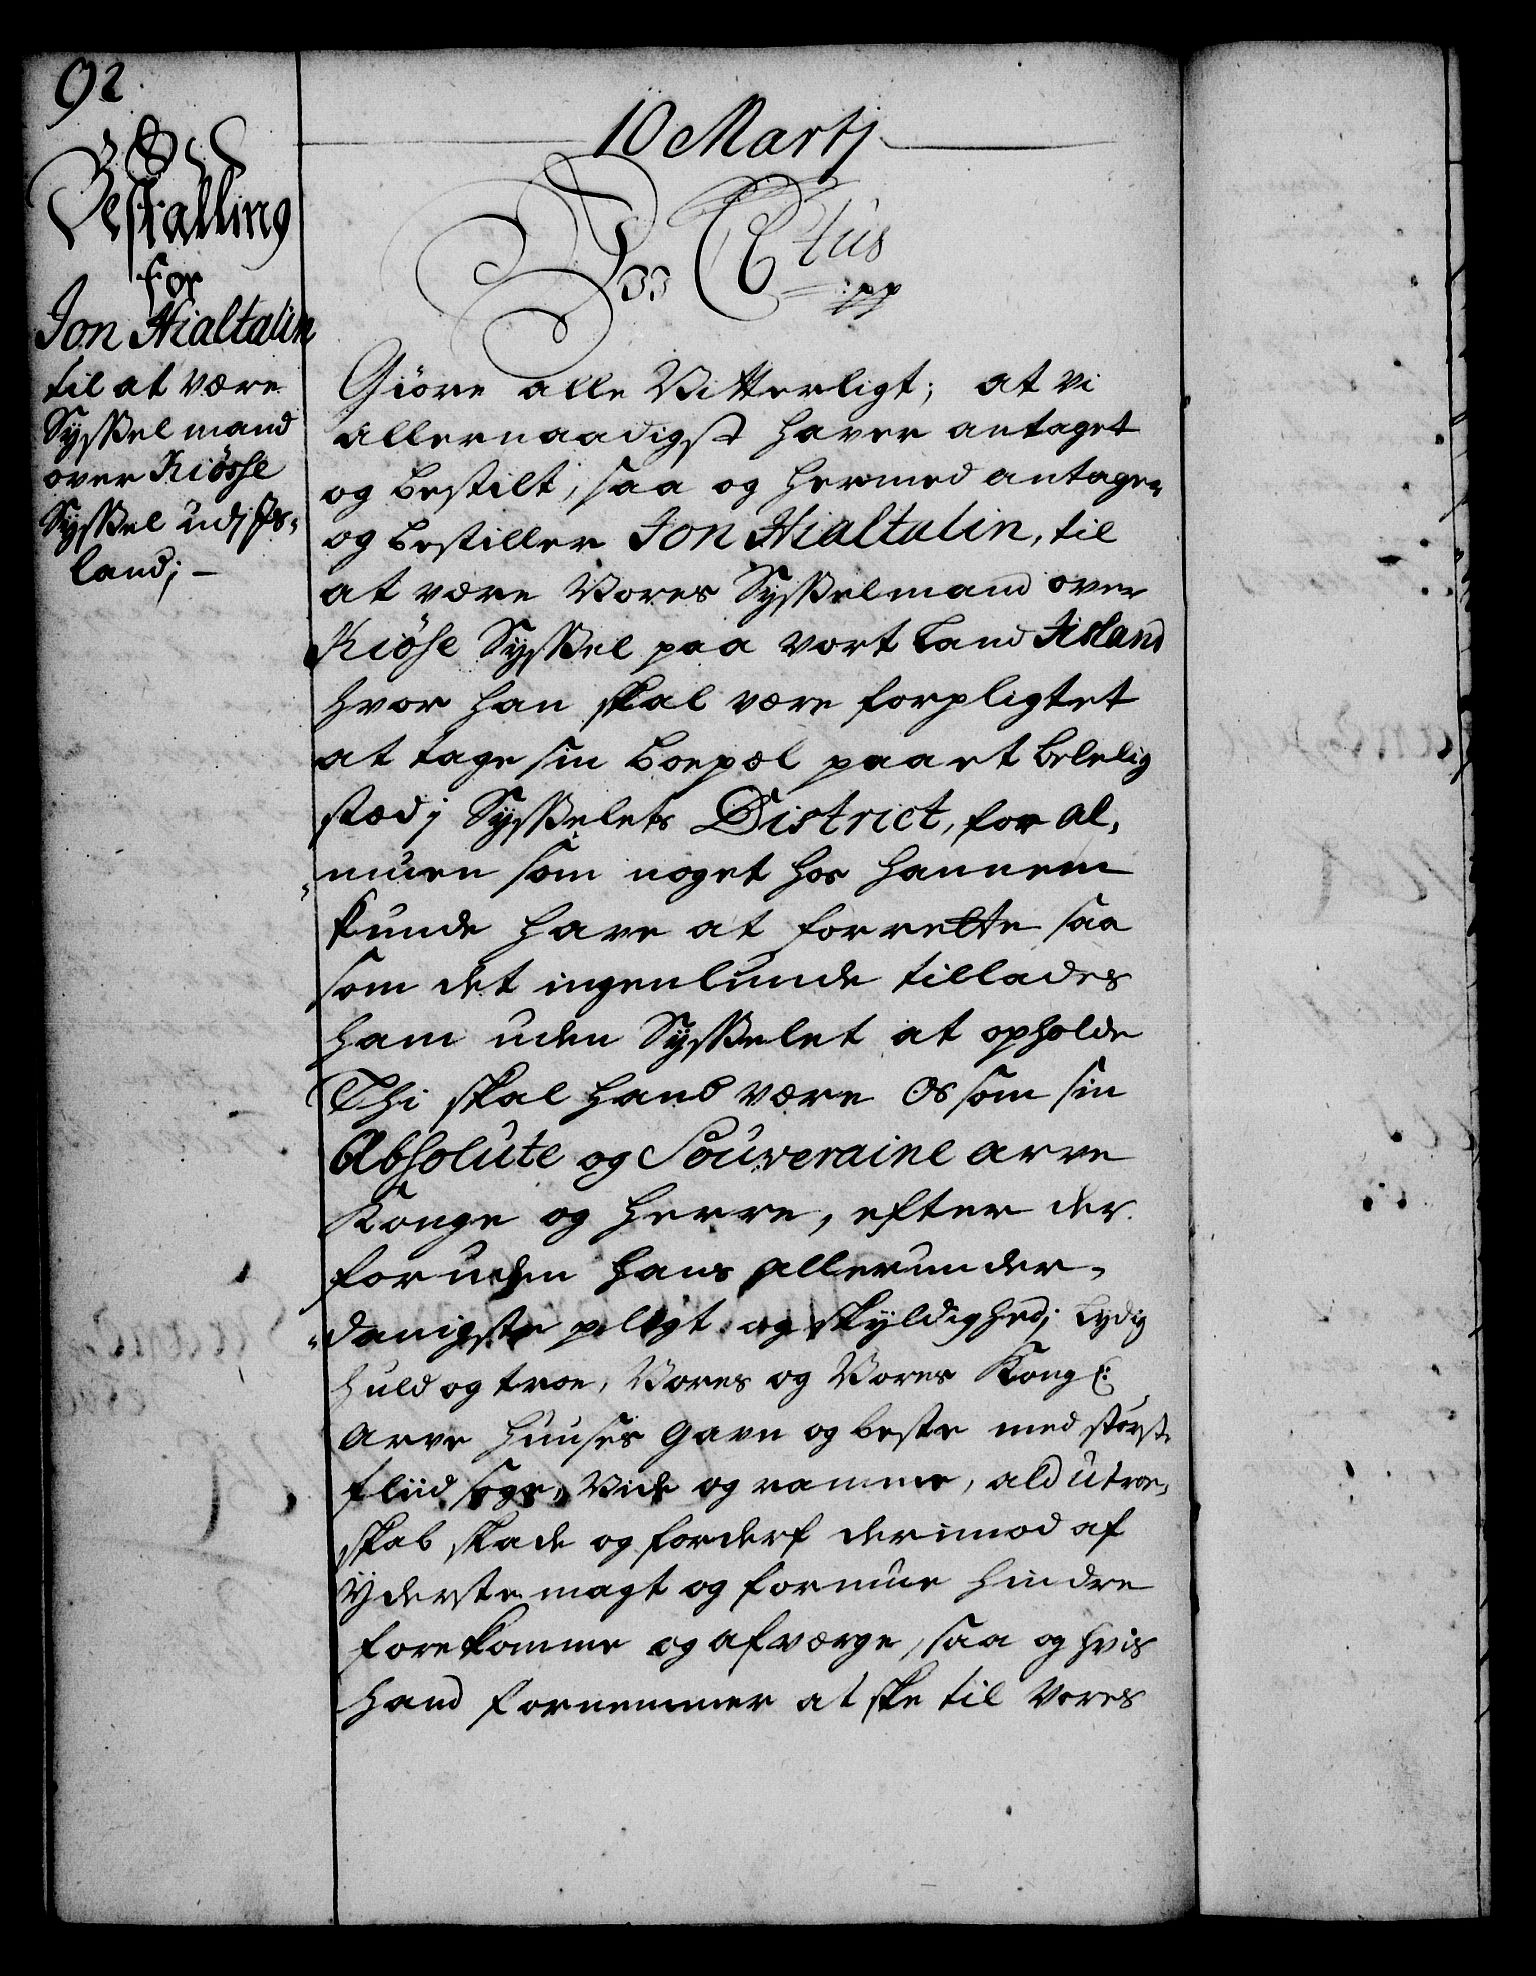 92.
Bestalling
for
Jon Hialtalin
til at være
Sysselmand
over Kiösse
Syssel udj Is-
land; -
10 Martj
C 6tus
:pp
Giöre alle Vitterligt; at vi
allernaadigst haver antaget
og bestilt, saa og hermed antager
og bestiller Jon Hialtalin, til
at være Vores Sysselmand over
Kiöse Syssel paa vort Land Iisland
hvor han skal være forpligtet
at tage sin boepæl paa et belelig
stæd j Sysselets District, for al-
muen som noget hos hannem
kunde have at forrette saa
som det ingenlunde tillades
ham uden Sysselet at opholde
Thi skal hand være Os som sin
Absolute og Souveraine arve
Konge og herre, efter der
foruden hans allerunder-
danigste pligt og skyldighed; Lydig
huld og troe, Vores og Vores Kongl:
Arve Huuses gavn og beste med störste
fliid søge, Vide og ramme, ald Utroe-
skab skade og forderf derimod af
Yderste magt og formue hindre
forekomme og afværge, saa og hvis
hand fornemmer at ske til Vores